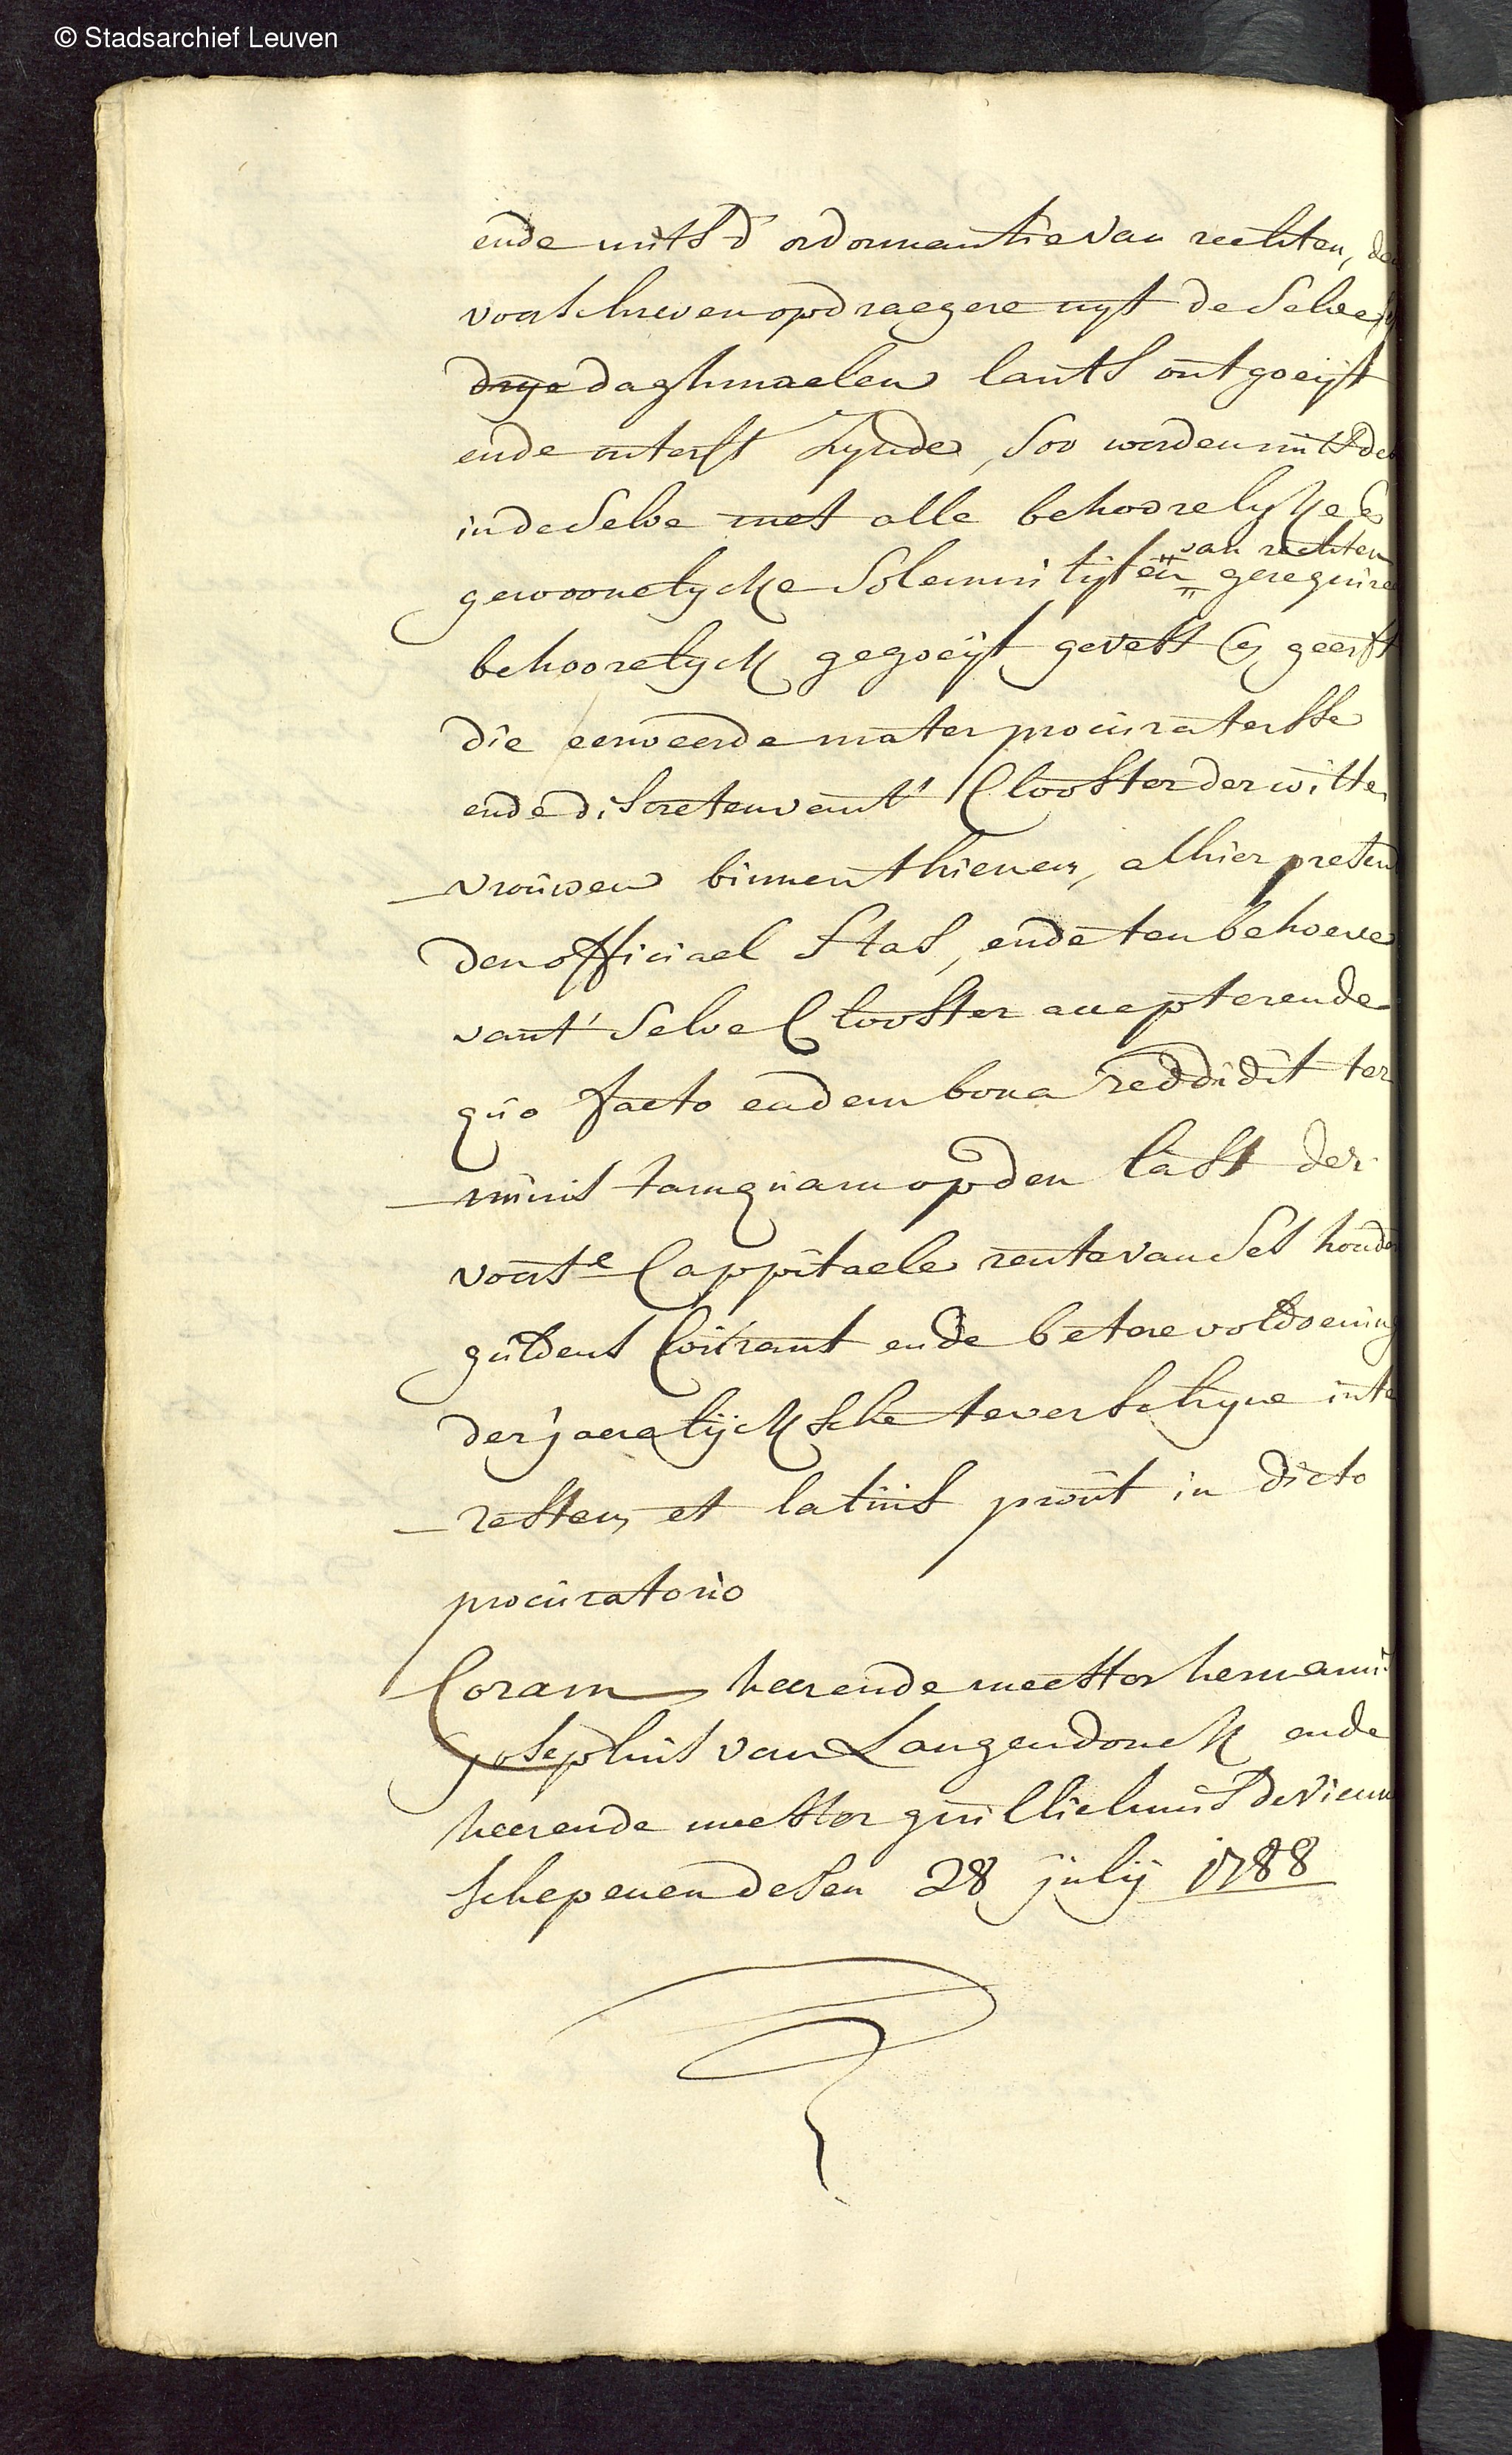 © Stadsarchief Leuven
ende mits d' ordonnantie van rechten, den
voorschreven opdraegere uyt de selve
drye daghmaelen lants ontgoeijt
ende onterft zynde, soo worden mits de
in de selve met alle behoorelyke en
van rechten
gewoonelycke solemnityten gerequiree
behoorelyck gegoeijt gevest en geerft
die eerweerde mater procuraterse
ende discreten vant' Clooster der witte
vrouwen binnen thienen, alhier presen
den officiael Stas, ende ten behoeve
vant' selve Clooster accepterende
quo facto eadem bona reddidit ter
minis tamquam op den last der
voorse Cappitaele rente van ses honder
guldens Courant ende betere voldoening
der jaerelijcksche te verschyne inte
resten et latius prout in dicto
procuratorio
Coram heer ende meester hermanus
josephus van Langendonck ende
heer ende meester guillielmus De
schepenen desen 28 julij 1788